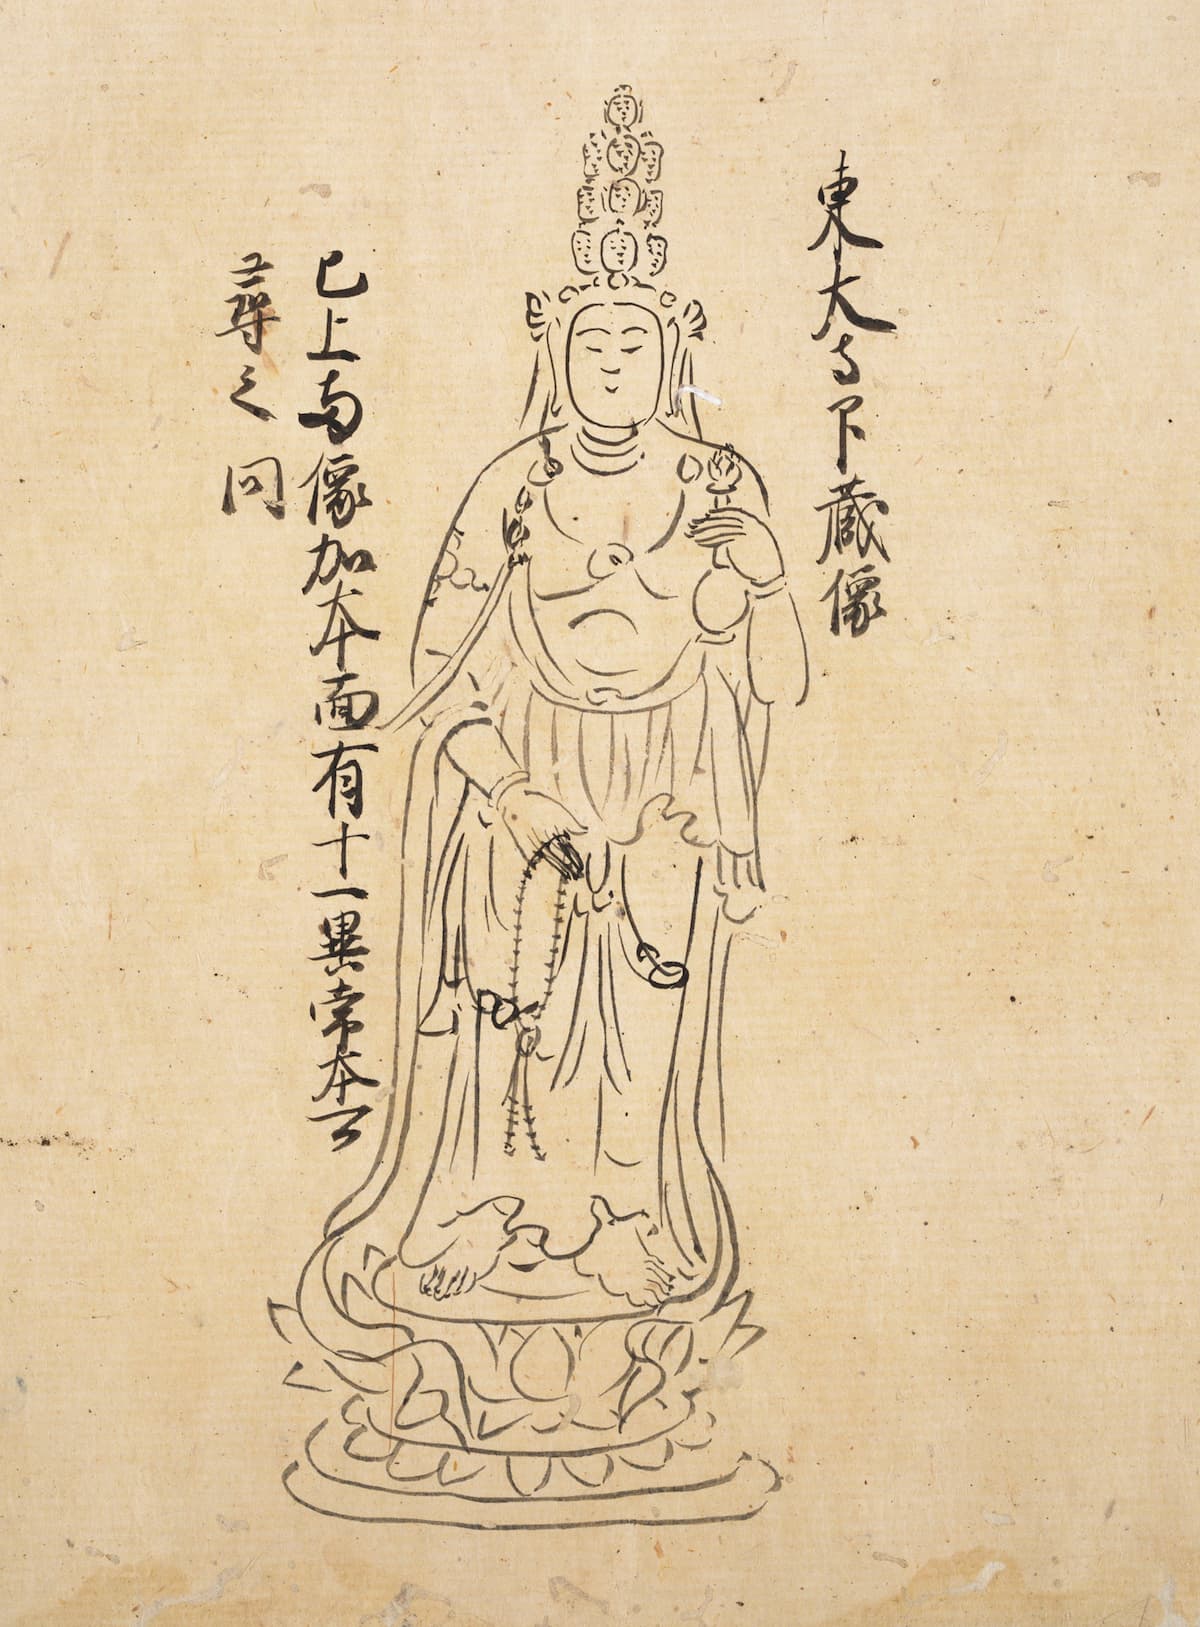 東大寺下蔵像
已上両像加本面有十一異常本云
尋之 同